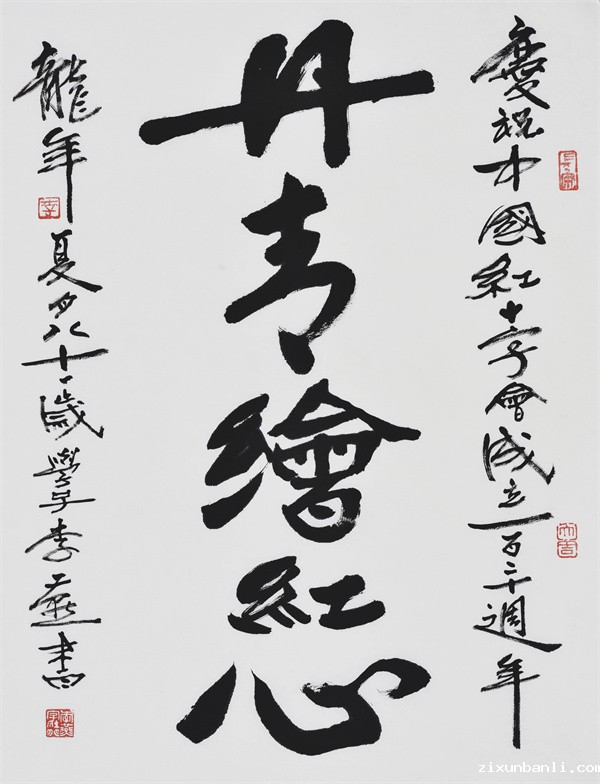 慶祝中國紅十字會成立一百二十週年
丹青繪紅心
龍年
夏月八十一歲學子李燕書
zixunbanli.com